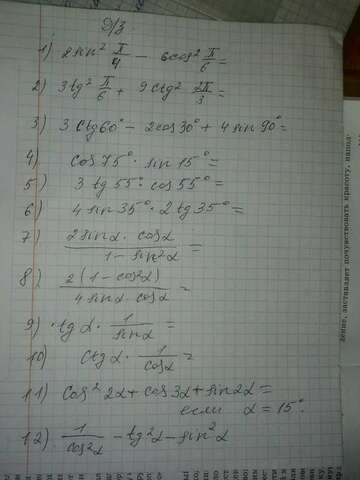 Д/з
1) 2 sin² π/4 - 6cos² π/6 =
2) 3tg² π/6 + 9ctg² 2π/3 =
3) 3 ctg60° - 2cos30° + 4 sin 90° =
4) cos 75° · sin 15° =
5) 3 tg 55° · cos 55° =
6) 4 sin 35° · 2 tg 35° =
7) 2 sinα · cosα / 1 - sin²α =
8) 2(1 - cos²α) / 4 sinα · cosα =
9) · tg α · 1/sinα =
10) ctg α · 1/cosα =
11) cos² 2α + cos 3α + sin2α =
если α = 15°.
12) 1/cos²α - tg²α - sin²α
дение, заставляет почувствовать красоту, напол-